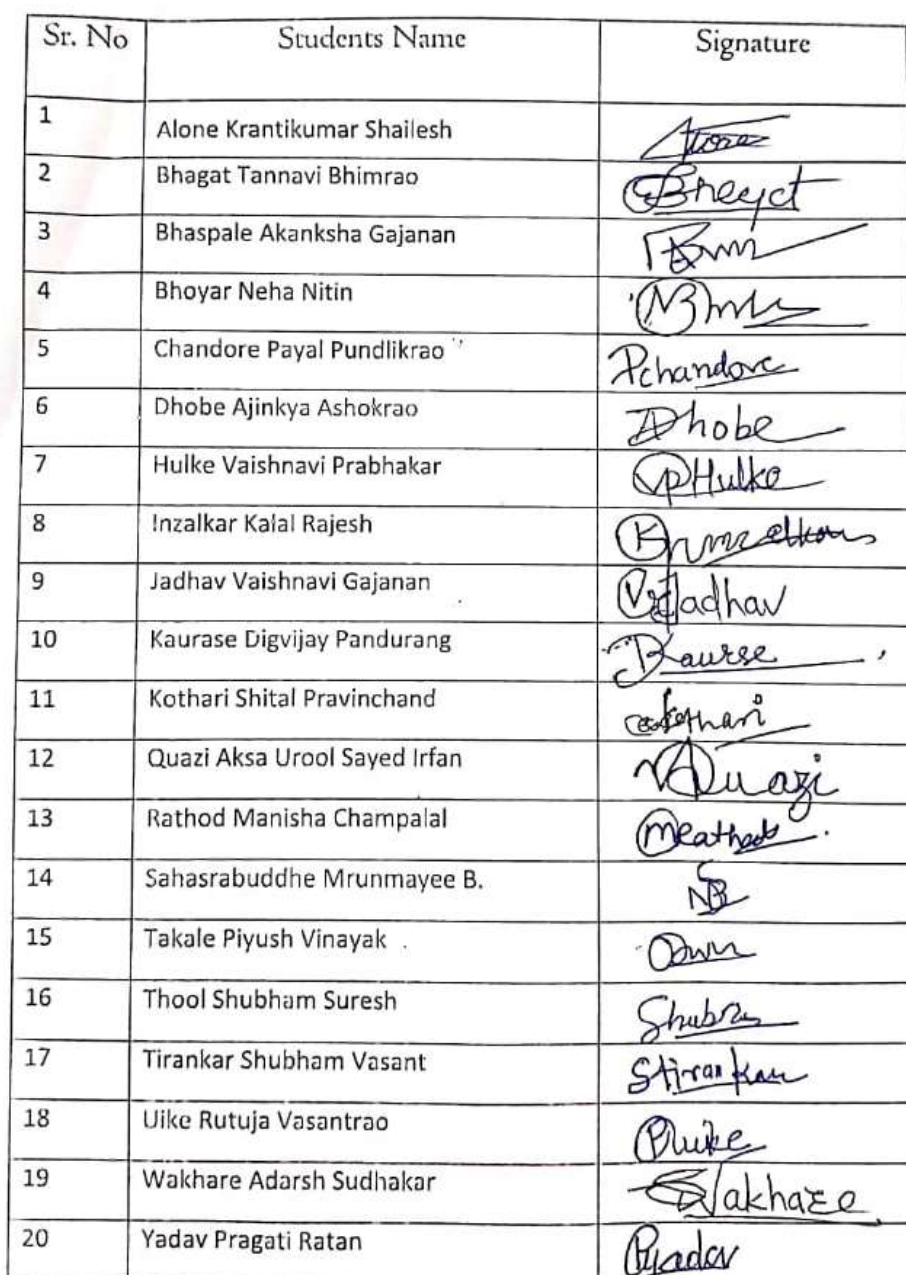 Sr. No Students Name Signature
1 Alone Krantikumar Shailesh
2 Bhagat Tannavi Bhimrao
3 Bhaspale Akanksha Gajanan
4 Bhoyar Neha Nitin
5 Chandore Payal Pundlikrao Pchandore
6 Dhobe Ajinkya Ashokrao Dhobe
7 Hulke Vaishnavi Prabhakar VpHulke
8 Inzalkar Kalal Rajesh
9 Jadhav Vaishnavi Gajanan Jadhav
10 Kaurase Digvijay Pandurang
11 Kothari Shital Pravinchand
12 Quazi Aksa Urool Sayed Irfan Quazi
13 Rathod Manisha Champalal
14 Sahasrabuddhe Mrunmayee B.
15 Takale Piyush Vinayak
16 Thool Shubham Suresh
17 Tirankar Shubham Vasant Stirankar
18 Uike Rutuja Vasantrao
19 Wakhare Adarsh Sudhakar Wakhare
20 Yadav Pragati Ratan